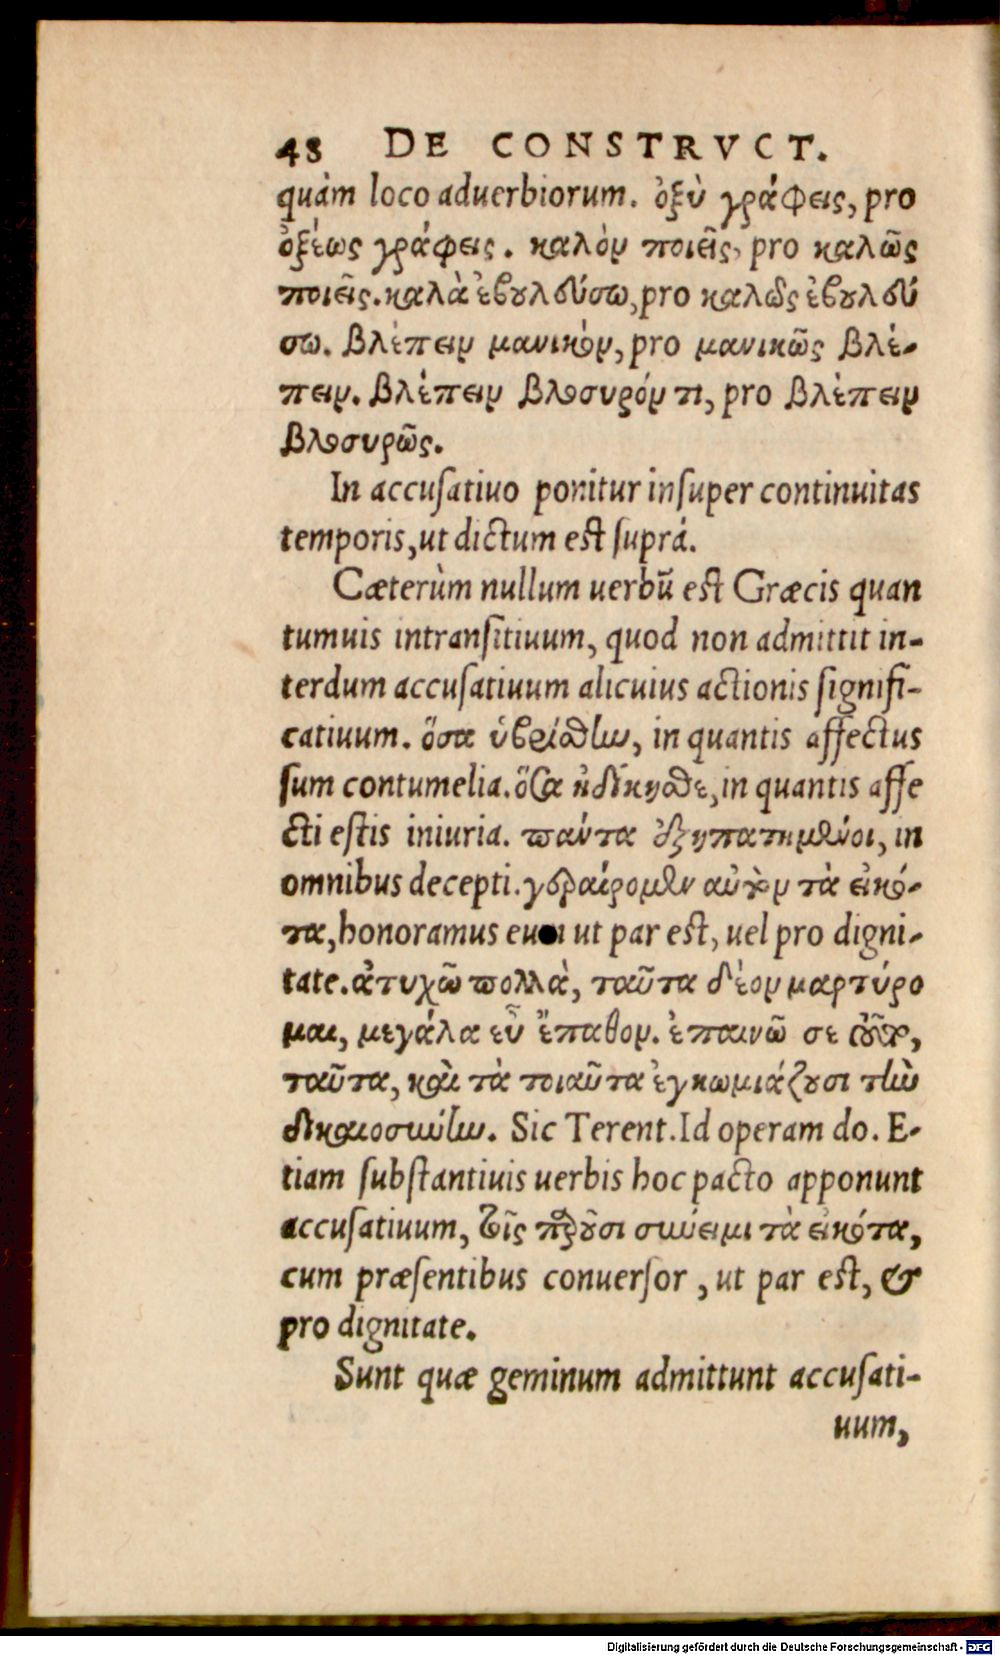 48 DE CONSTRVCT.
quàm loco aduerbiorum. ὀξὺ γράφεις, pro
ὀξέως γράφεις. καλὸν ποιεῖς, pro καλῶς
ποιεῖς. καλὰ ἐβουλεύσω, pro καλῶς ἐβουλεύ
σω. βλέπειν μανικὸν, pro μανικῶς βλέ-
πειν. βλέπειν βλοσυρόν τι, pro βλέπειν
βλοσυρῶς.
In accusatiuo ponitur insuper continuitas
temporis, ut dictum est suprá.
Cæterùm nullum uerbũ est Græcis quan
tumuis intransitiuum, quod non admittit in-
terdum accusatiuum alicuius actionis signifi-
catiuum. ὅσα ὑβρίσθην, in quantis affectus
sum contumelia. ὅσα ἠδίκησθε, in quantis affe
cti estis iniuria. πάντα ἐξηπατημένοι, in
omnibus decepti. γεραίρομεν αὐτὸν τὰ εἰκό-
τα, honoramus eum ut par est, uel pro digni-
tate. ἀτυχῶ πολλὰ, ταῦτα δέον μαρτύρο
μαι, μεγάλα εὖ ἔπαθον. ἐπαινῶ σε τοῦτο,
ταῦτα, καὶ τὰ τοιαῦτα ἐγκωμιάζουσι τὴν
δικαιοσύνην. Sic Terent. Id operam do. E-
tiam substantiuis uerbis hoc pacto apponunt
accusatiuum, τοῖς παροῦσι σύνειμι τὰ εἰκότα,
cum præsentibus conuersor, ut par est, &
pro dignitate.
Sunt quæ geminum admittunt accusati-
uum,
Digitalisierung gefördert durch die Deutsche Forschungsgemeinschaft - DFG